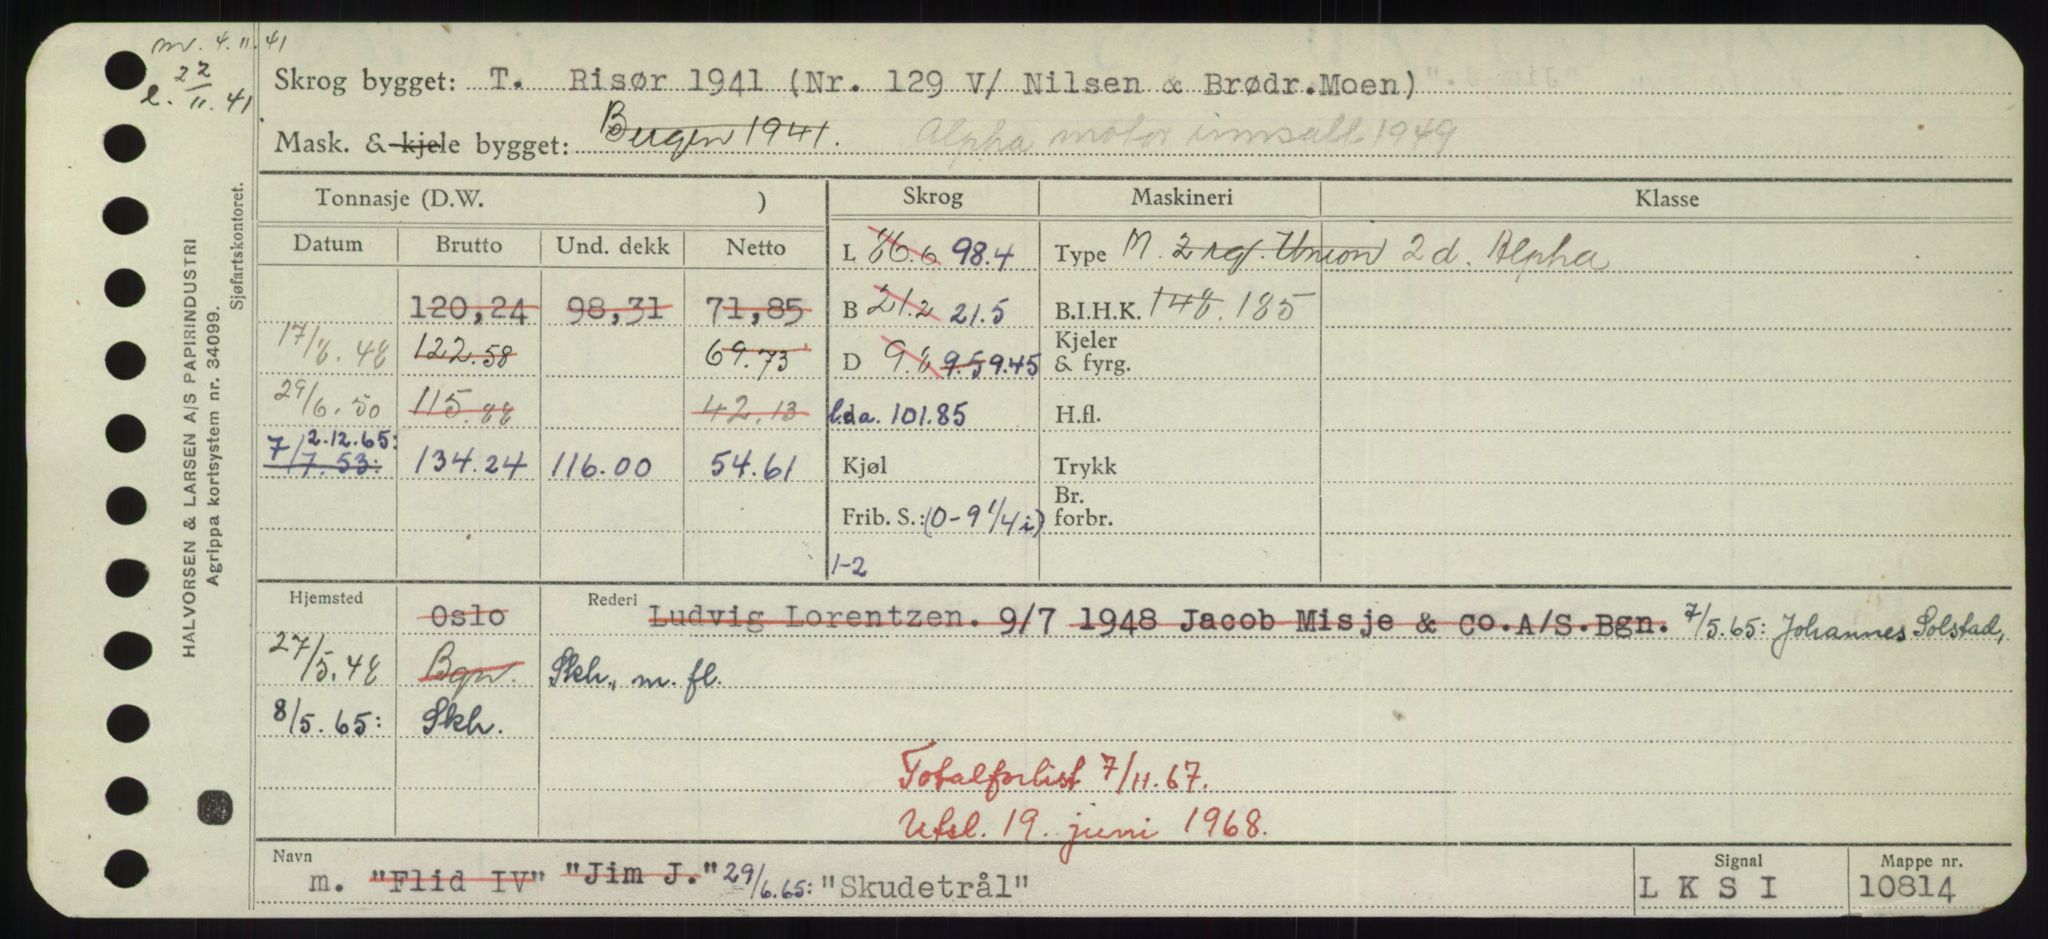 mv. 4.11.41
l. 22/11.41
Skrog bygget: T. Risør 1941 (Nr. 129 V/ Nilsen & Brødr.Moen)
Mask. & kjele bygget: Bergen 1941. Alpha motor innsatt 1949
HALVORSEN & LARSEN A/S PAPIRINDUSTRI
Agrippa kortsystem nr. 34099.
Sjøfartskontoret.
Tonnasje (D.W. ) Skrog Maskineri Klasse
Datum Brutto Und. dekk Netto
L 86.0 98.4 Type M. 2 rgf. Union 2 d. Alpha
120,24 98,31 71,85 B 21.2 21.5 B.I.H.K. 148. 185
17/8.48 122.58 69.73 D 9.8 9.5 9.45 Kjeler & fyrg.
29/6.50 115.88 42.13 l.o.a. 101.85 H.fl.
7/7.53: 2.12.65: 134.24 116.00 54.61 Kjøl Trykk
Frib. S.: (0-9 1/4 i) Br. forbr.
1-2
Hjemsted Oslo Rederi Ludvig Lorentzen. 9/7 1948 Jacob Misje & Co.A/S.Bgn. 7/5.65: Johannes Solstad,
27/5.48 Bgn. Skh., m. fl.
8/5.65: Skh.
Totalforlist 7/11.67.
Utsl. 19. juni 1968.
Navn Signal Mappe nr.
m. "Flid IV" "Jim J." 29/6.65: "Skudetrål" L K S I 10814